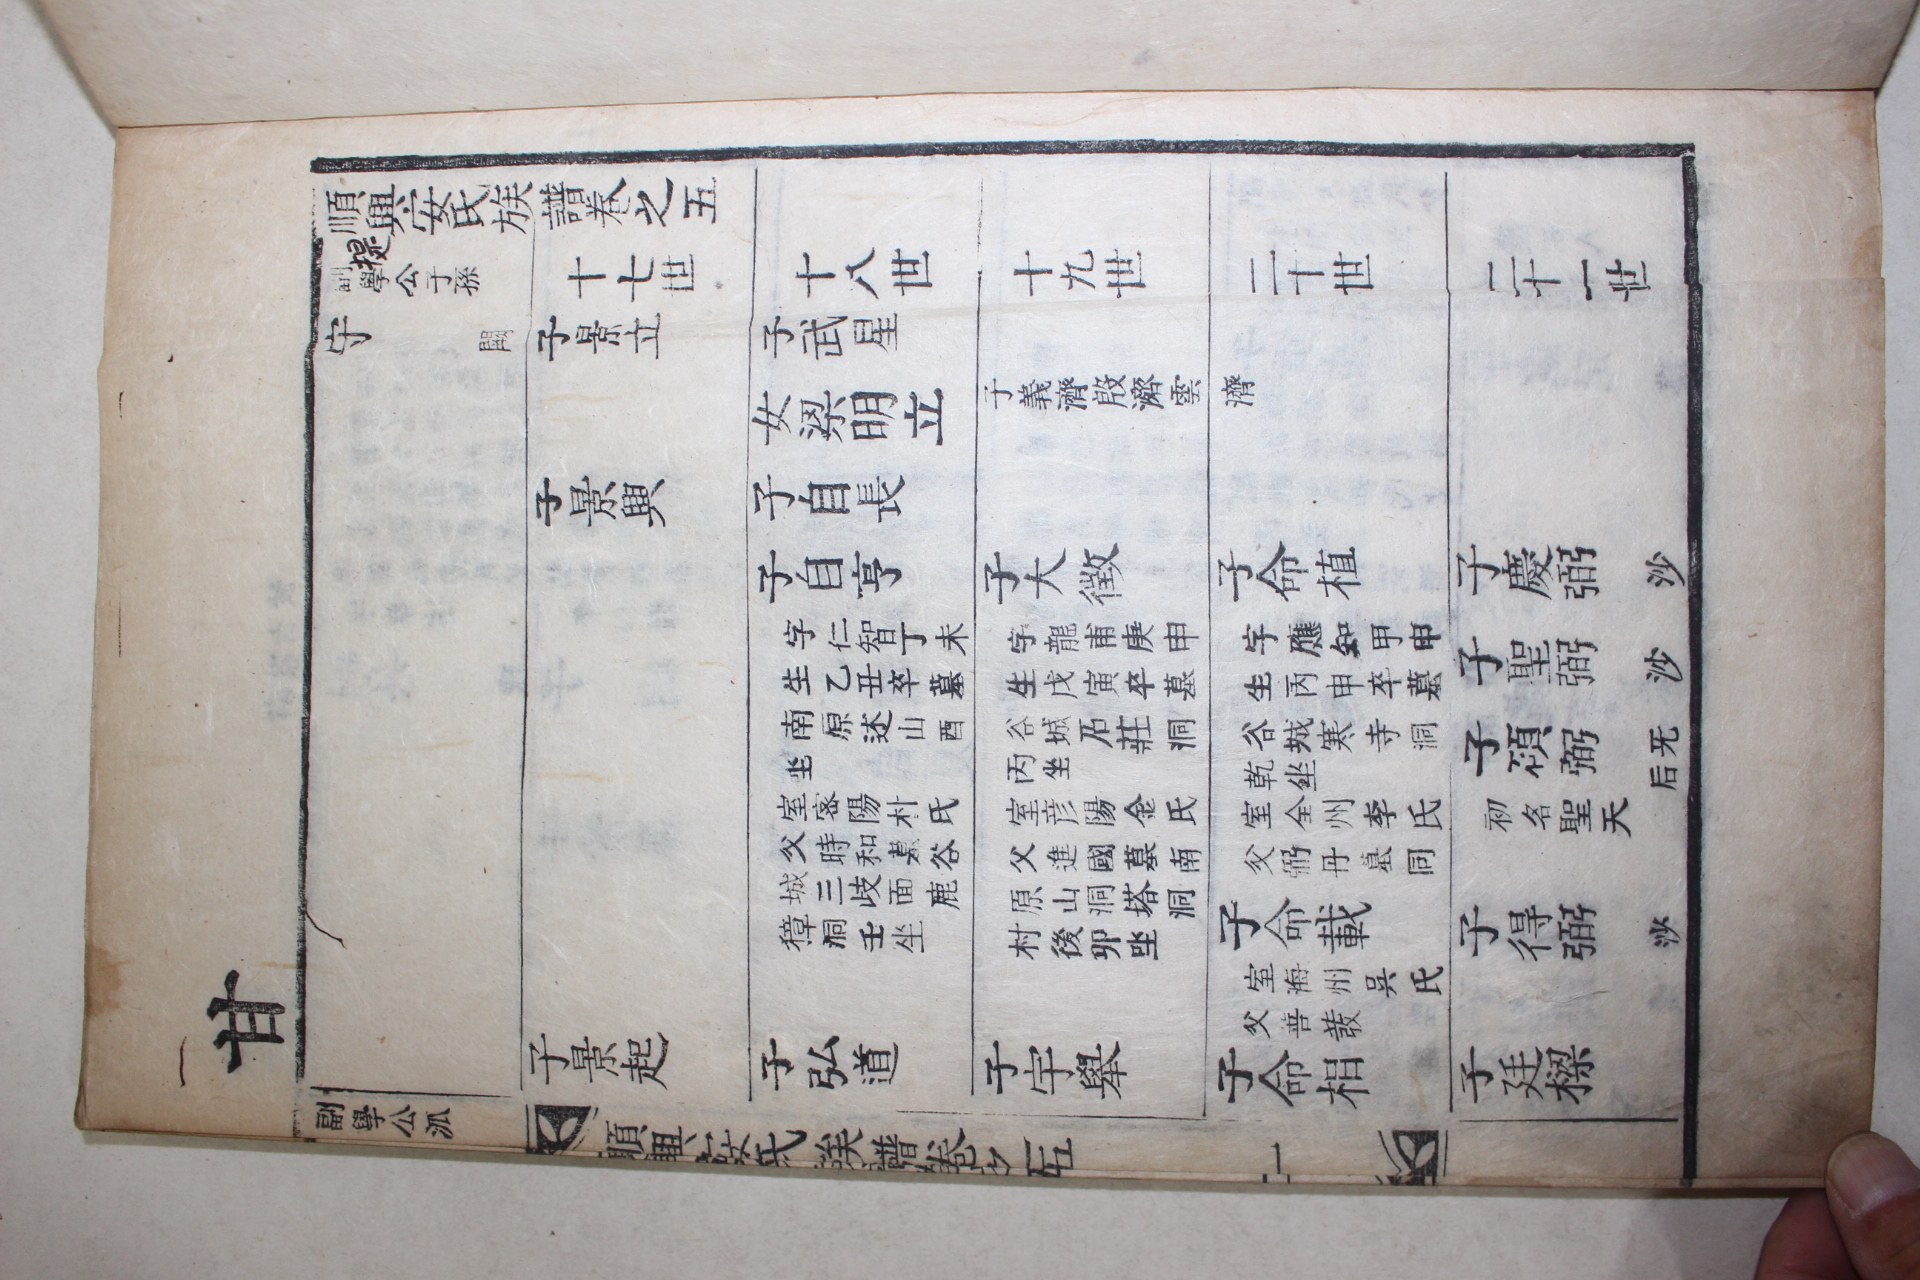 順興安氏族譜卷之五
副提學公子孫 十七世 十八世 十九世 二十世 二十一世
守 闕 子景立 子武星
女梁明立 子義濟啟濟雲濟
子景興 子自長
子自亨 子大徵 子命植 子慶弼 沙
字仁智丁未 字龍甫庚申 字應知甲申 子聖弼 沙
生乙丑卒墓 生戊寅卒墓 生丙申卒墓
南原述山酉 谷城石莊洞 谷城寒寺洞 子碩弼 后无
坐 丙坐 乾坐
室密陽朴氏 室彦陽金氏 室全州李氏 初名聖天
父時和墓谷 父進國墓南 父弼丹墓同
城三歧面鹿 原山洞塔洞 子命載 子得弼 沙
獐洞壬坐 村後卯坐
室海州吳氏
甘 父善發
子景起 子弘道 子宇舉 子命梠 子廷樑
副學公派 順興安氏族譜卷之五 一